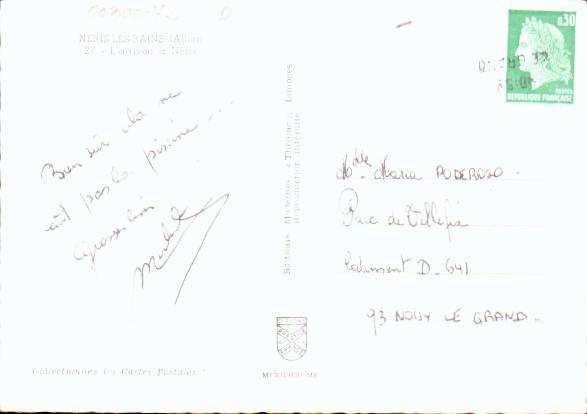 00300-72 D
NERIS-LES-BAINS (Allier)
27 - L'arrivée à Néris
Bien sûr cela ne
vaut pas la piscine ...
Grosses bises
Editions Modernes « Théojac », Limoges
Reproduction interdite
0,30
POSTES
REPUBLIQUE FRANÇAISE
Mlle Maria PODEROSO.
Parc de Villefix
batiment D. 641
93 NOISY LE GRAND -
Collectionnez les Cartes Postales !
MEXICHROME